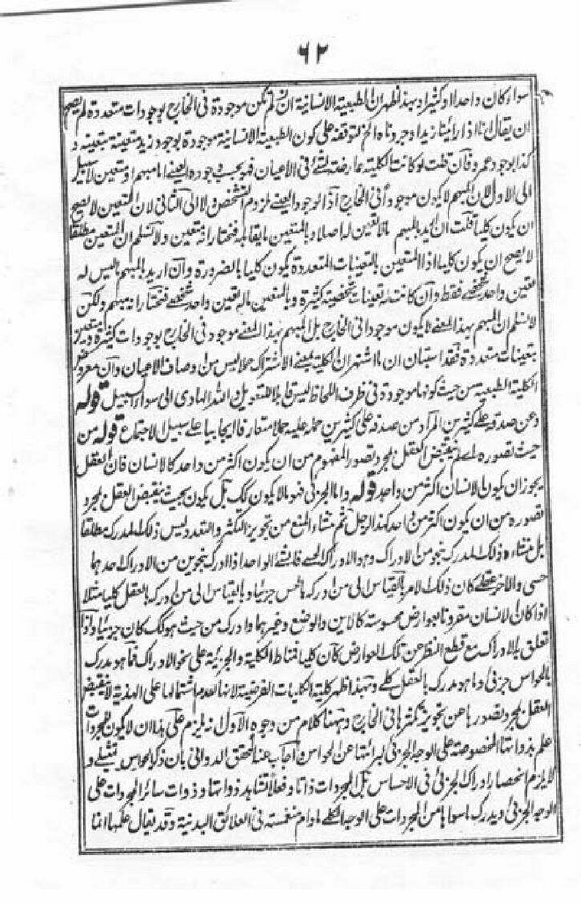 ٦٢
سواء كان واحدا او كثيرا وبهذا ظهر ان الطبيعة الانسانية ان لم تكن موجودة فى الخارج بوجودات متعددة لم يصح
ان يقال انا اذا رأينا زيدا وجردناه الخ لتوقفه على كون الطبيعة الانسانية موجودة بوجود زيد متعينة بتعينه و
كذا بوجود عمرو فان قلت لو كانت الكلية عارضة لشئ فى الاعيان فهو يجب وجوده اما مبهم او متعين لا سبيل
الى الاول لان المبهم لا يكون موجودا فى الخارج اذ الوجود ملزوم التشخص ولا الى الثانى لان المتعين لا يصح
ان يكون كليا قلت ان اريد بالمبهم مالا تعين له اصلا وبالمتعين ما يقابله فنختار انه متعين ولا نسلم ان المتعين مطلقا
لا يصح ان يكون كليا اذ المتعين بالتعينات المتعددة يكون كليا بالضرورة وان اريد بالمبهم ما ليس له
تعين واحد شخصى فقط وان كانت له تعينات شخصية كثيرة وبالمتعين ماله تعين واحد شخصى فنختار انه مبهم ولكن
لا نسلم ان المبهم بهذا المعنى لا يكون موجودا فى الخارج بل المبهم بهذا المعنى موجود فى الخارج بوجودات كثيرة ومتعين
بتعينات متعددة فقد استبان ان ما اشتهر ان الكلية بمعنى الاشتراك حملا ليس من اوصاف الاعيان وان معروض
الكلية الطبيعية من حيث كونها موجودة فى ظرف اللحاظ ليس قابلا للتعويل والله الهادى الى سواء السبيل قوله
وعن صدقه على كثيرين المراد من صدقه على كثيرين حمله عليه حملا متعارفا ايجابيا على سبيل الاجتماع قوله من
حيث تصوره اى لم يقبض العقل بمجرد تصور المفهوم من ان يكون اكثر من واحد كالانسان فان العقل
يجوز ان يكون الانسان اكثر من واحد قوله واما الجزئى فهو ما لا يكون كك بل يكون بحيث ينقبض العقل بمجرد
تصوره من ان يكون اكثر من واحد كهذا الرجل ثم منشاء المنع من تجويز التكثر والتعدد ليس ذلك المدرك مطلقا
بل منشاءه ذلك المدرك بنحو من الادراك وهو الادراك الحسى فالشئ الواحد اذا ادرك بنحوين من الادراك احدهما
حسى والآخر عقلى كان ذلك الامر بالقياس الى من ادركه بالحس جزئيا وبالقياس الى من ادركه بالعقل كليا مثلا
اذا كان الانسان مقرونا بعوارض محسوسة كالاين والوضع وغيرهما وادرك من حيث هو كك كان جزئيا واذا
تعلق به الادراك مع قطع النظر عن تلك العوارض كان كليا فمناط الكلية والجزئية على نحو الادراك فما هو مدرك
بالحواس جزئى وما هو مدرك بالعقل كلى وبهذا ظهر كلية الكليات الفرضية لانها لعدم اشتمالها على الهذية لا ينقبض
العقل بمجرد تصورها عن تجويز تكثرها فى الخارج وههنا كلام من وجوه الاول انه يلزم على هذا ان لا يكون للمجردات
علم بذواتها المخصوصة على الوجه الجزئى لبرائتها عن الحواس اجاب عنه المحقق الدوانى بان ذكر الحواس تمثيلى و
لا يلزم انحصار ادراك الجزئى فى الاحساس بل المجردات ذاتا وفعلا تشاهد ذواتها وذوات سائر المجردات على
الوجه الجزئى ويدرك ما سواها من المجردات على الوجه الكلى ما دام منغمسة فى العلائق البدنية وقد يقال علمها انما